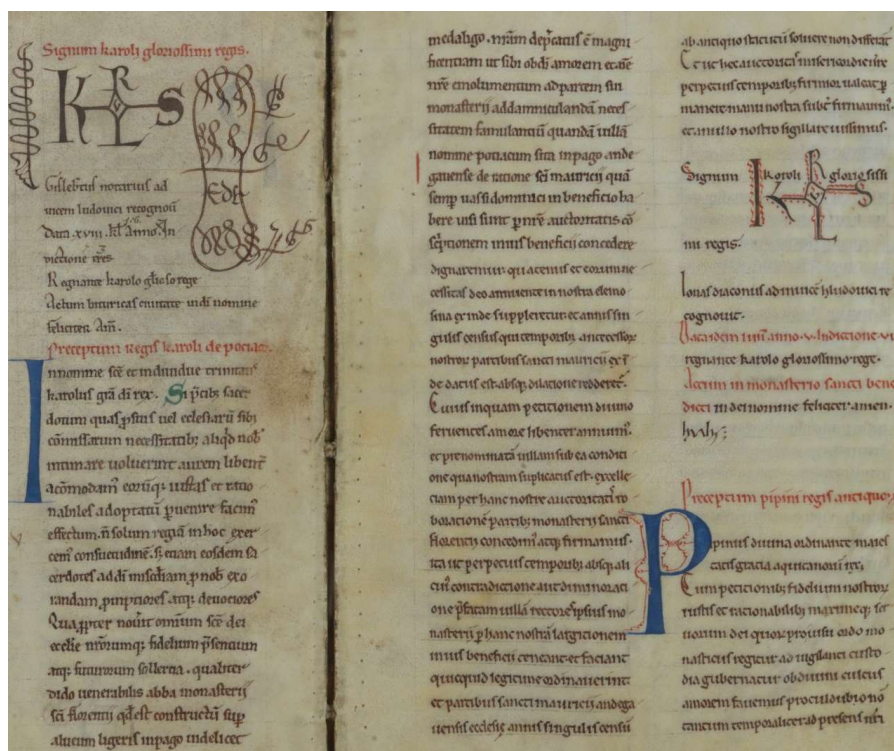 Signum karoli gloriosissimi regis.
KRLS
Gislebertus notarius ad
uicem ludouici recognouit
Data xviii. kl
dictione
Regnante karolo glioso rege
Actum bituricas ciuitate in di nomine
feliciter Am̄.
Preceptum regis karoli de
In nomine sc̄e et indiuidue trinitatis
karolus gr̄a dī rex. Si
dotum quas ipsius uel ecclesiarū sibi
cōmissarum necessitatib; aliqd nob
intimare uoluerint aurem libent
acōmodam eorūq; iustas et ratio
nabiles adoptatū puenire facim
effectum. n̄ solum regiā in hoc exer
cem consuetudinē. s; etiam eosdem sa
cerdotes ad dī misc̄diam p nob exo
randam promptiores atq; deuotiores
Quapropter nouit omnium sc̄e dei
ecclie nr̄orumq; fidelium p̄sentium
atq; futurorum sollercia. qualiter
dido uenerabilis abba monasterii
sc̄i florentii qd est constructū sup
alueum ligeris in pago indelicet
medalgo. nr̄am dep̄catus ē magni
ficentiam ut sibi ob dī amorem et
nr̄e emolumentum ad partem sui
monasterii ad amminiculandā neces
sitatem famulantiū quandā uillā
nomine potiacum sita in pago ande
gauense de ratione sc̄i mauricii quā
semp uassi dominici in beneficio ha
bere uisi sunt p nr̄e auctoritatis cō
sc̄ptionem in ius beneficii concedere
dignaremur. qu actenus et eorum ne
cessitas deo annuente in nostra elemo
sina ex inde suppleretur. et annis sin
gulis census qui temporib; antecessor
nostror partibus sancti mauricii ex
de datus est absq; dilatione redderet.
Cuius inquam peticionem diuino
feruentes amore libenter annuim.
et prenominatā uillam sub ea condici
one qua nostram suplicatus est. excelle
ciam per hanc nostre auctoritatis ro
boratione partib; monasterii sancti
florentii concedim atq; firmamus.
ita ut perpetuis temporib; absq; ali
cui contradictione aut diminoraci
one p̄fatam uillā rectores ipsius mo
nasterii p hanc nostrā largitionem
in ius beneficii teneant et faciant
quicquid legitime ordinauerint
et partibus sancti mauricii andega
uensis ecclesie annis singulis censū
ab antiquo statutū soluere non differat
Et ut hec auctoritas misericordie nr̄e
perpetuis temporib; firmior ualeat p
manere manu nostra subt firmauim.
et anulo nostro sigillare iussimus.
Signum karoli gloriosissi
KRLS
mi regis.
Ionas diaconus ad uicē hludouici re
cognouit.
anno v. Indictione vi
regnante karolo gloriossimo rege.
Actum in monasterio sancti bene
dicti in dei nomine feliciter amen.
Preceptum pipini regis antiquor
Pipinus diuina ordinante maies
tatis gracia aquitanorū rex.
Cum peticionib; fidelium nostror
iustis et racionabilib; maxime q; ser
uorum dei quor prouisu ordo mo
nasticus regitur ac uigilanti custo
dia gubernatur obdiuini cultus
amorem fauemus procul dubio nō
tantum temporaliter ad presens